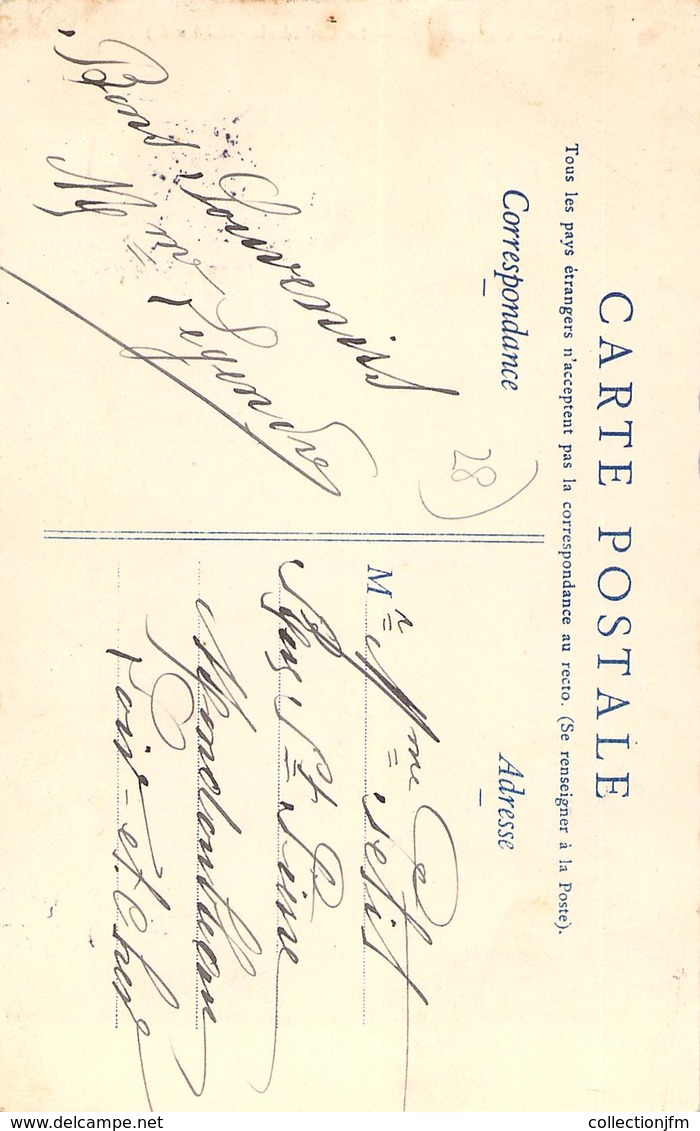 CARTE POSTALE
Tous les pays étrangers n'acceptent pas la correspondance au recto. (Se renseigner à la Poste).
Correspondance
Adresse
Bons Souvenirs
Mme Legendre
28)
Mr Mme Petit
Place St Pierre
Mondoubleau
Loir-et-Cher
delcampe.net
collectionjfm